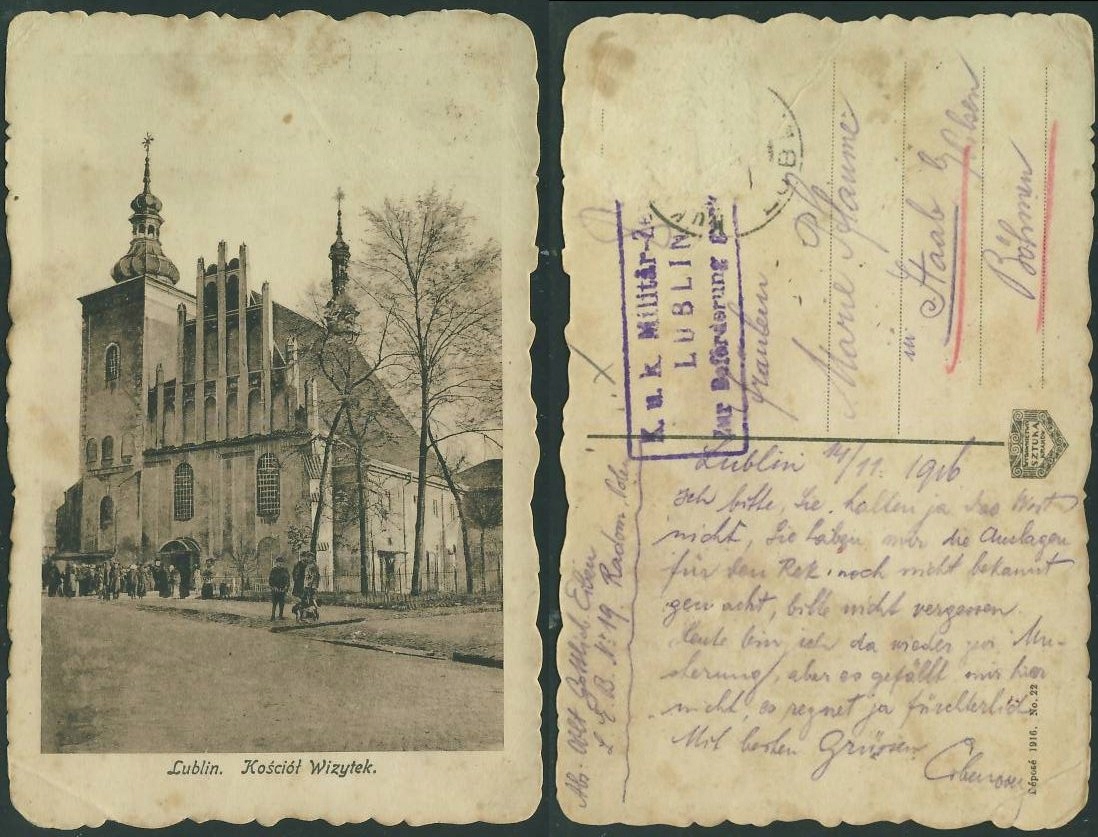 Lublin. Kościół Wizytek.
K. u. k. Militär-Ze
LUBLIN
Zur Beförderung ge
LUB
K.u.K
Fräulein
Marie
in Staab b/ Pilsen
Böhmen
SZTUKA
KRAKÓW
Lublin 14/11. 1916
Ich bitte, Sie halten ja das Wort
nicht, Sie haben mir die Auslagen
für den Rok noch nicht bekannt
gemacht, bitte nicht vergessen.
Heute bin ich da wieder zur Mu-
sterung, aber es gefällt mir hier
nicht, es regnet ja fürchterlich
Mit besten Grüssen
Abs. Gottlieb
L. E. B. No 19. Radom. Polen
Déposé 1916. No. 22